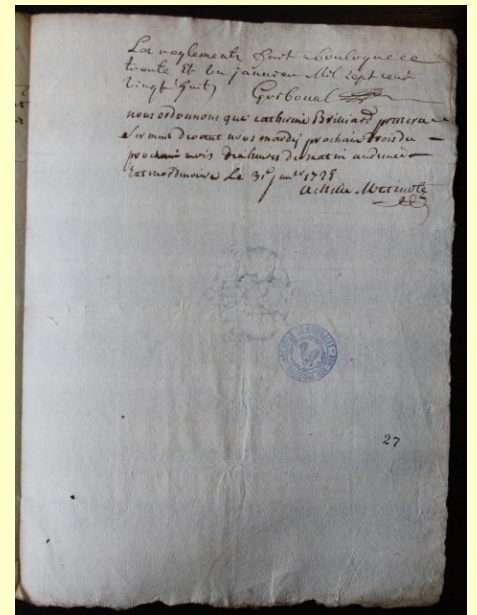 Les reglements fait a boulogne ce
trente Et un janvier Mil sept cent
vingt huit
Griboual
nous ordonnons que catherine Brilliard pretera
Serment devant nous mardy prochain trois du
prochain mois dix heures du matin audience
Extraordinaire Le 31e janer 1728
achille Mutinot
ARCHIVES
27